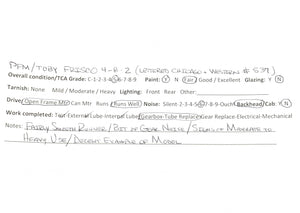 PFM/TOBY FRISCO 4-8-2 (LETTERED CHICAGO + WESTERN # 539)
Overall condition/TCA Grade: C-1-2-3-4-5-6-7-8-9 Paint: Y N Fair / Good / Excellent Glazing: Y N
Tarnish: None Mild / Moderate / Heavy Lighting: Front Rear Other:
Drive: Open Frame Mtr Can Mtr Runs Runs Well Noise: Silent 2-3-4-5-6-7-8-9-Ouch! Backhead/Cab: Y N
Work completed: Test-External Lube-Internal Lube-Gearbox-Tube Replace-Gear Replace-Electrical-Mechanical
Notes: FAIRLY SMOOTH RUNNER / BIT OF GEAR NOISE / SIGNS OF MODERATE TO
HEAVY USE / DECENT EXAMPLE OF MODEL